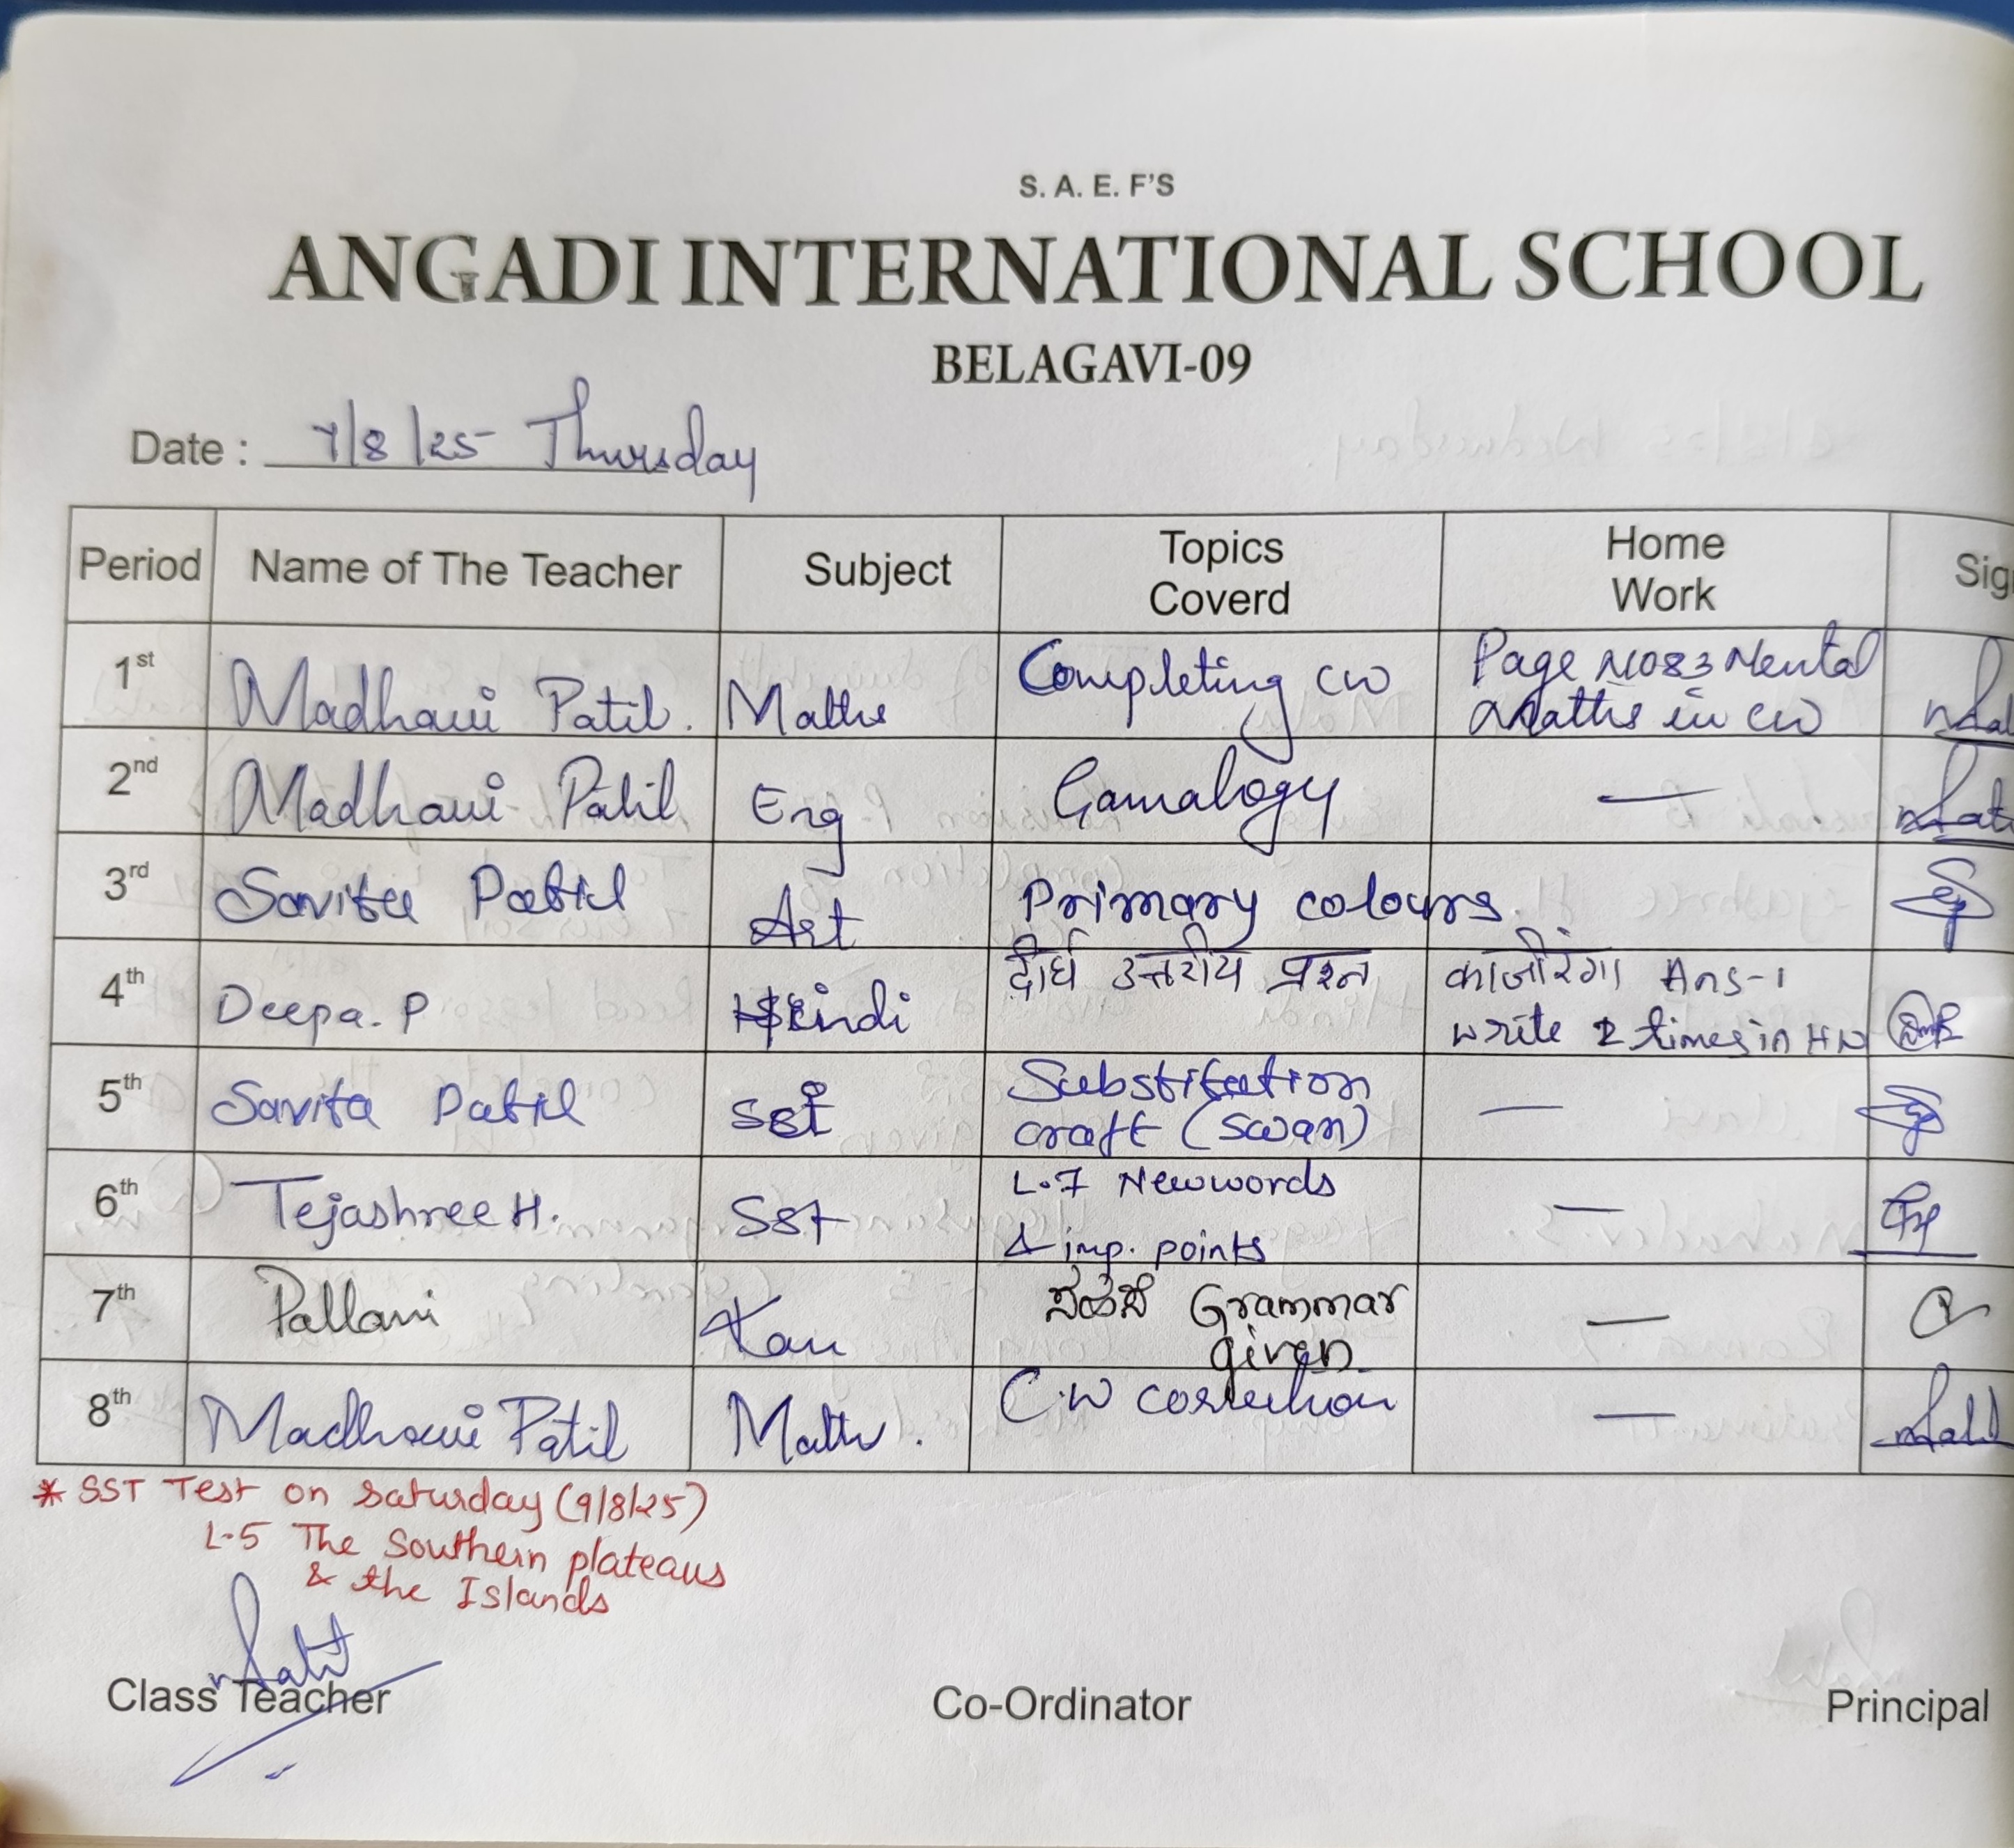 S. A. E. F'S
ANGADI INTERNATIONAL SCHOOL
BELAGAVI-09
Date : 7/8/25 Thursday
Period Name of The Teacher Subject Topics Coverd Home Work Sig
1st Madhavi Patil. Maths Completing CW Page No 83 Mental
Maths in CW
2nd Madhavi Patil Eng Gamalogy —
3rd Savita Patil Art Primary colours.
4th Deepa. P Hindi दीर्घ उत्तरीय प्रश्न काजीरंगा Ans-1
write 2 times in HW
5th Savita Patil Substitution —
craft (swan)
6th Tejashree H. SST L-7 New words —
& imp. points
7th Pallavi Kan Grammar —
given
8th Madhavi Patil Maths. C.W correction —
* SST Test on Saturday (9/8/25)
L-5 The Southern plateaus
& the Islands
Class Teacher Co-Ordinator Principal